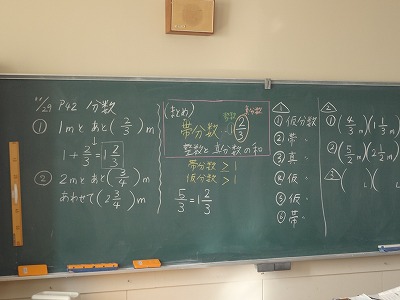 11/29 P42 分数
① 1mとあと(2/3)m
1+2/3=1 2/3
② 2mとあと(3/4)m
あわせて(2 3/4)m
(まとめ)
整数 真分数
帯分数…1 2/3
整数と真分数の和
帯分数>1
仮分数>1
5/3=1 2/3
△1
①仮分数
②帯〃
③真〃
④仮〃
⑤仮〃
⑥帯〃
△2
①(4/3 m)(1 1/3 m)
②(5/2 m)(2 1/2 m)
△3( L)( L